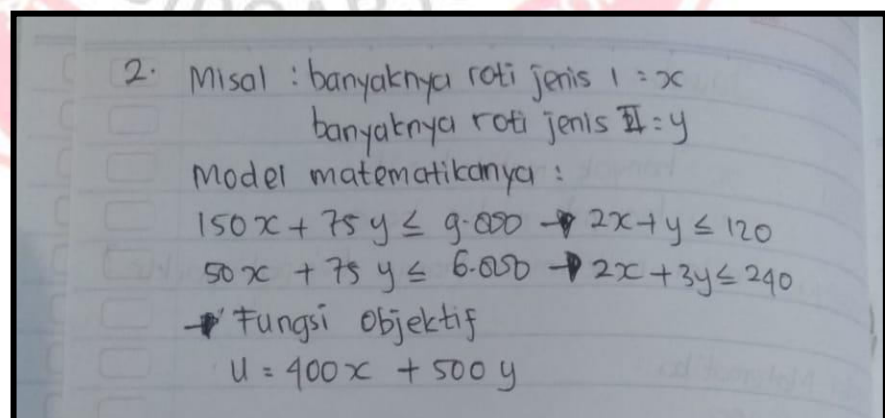 2. Misal : banyaknya roti jenis 1 = x
banyaknya roti jenis II = y
Model matematikanya :
150x + 75y ≤ 9.000 → 2x + y ≤ 120
50x + 75y ≤ 6.000 → 2x + 3y ≤ 240
→ Fungsi Objektif
U = 400x + 500y